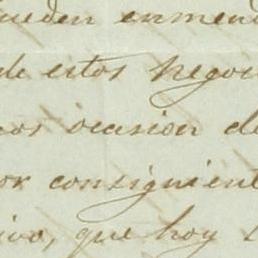 ueden enmend
de estos negoci
nos ocasion de
or consiguient
ivo, que hoy